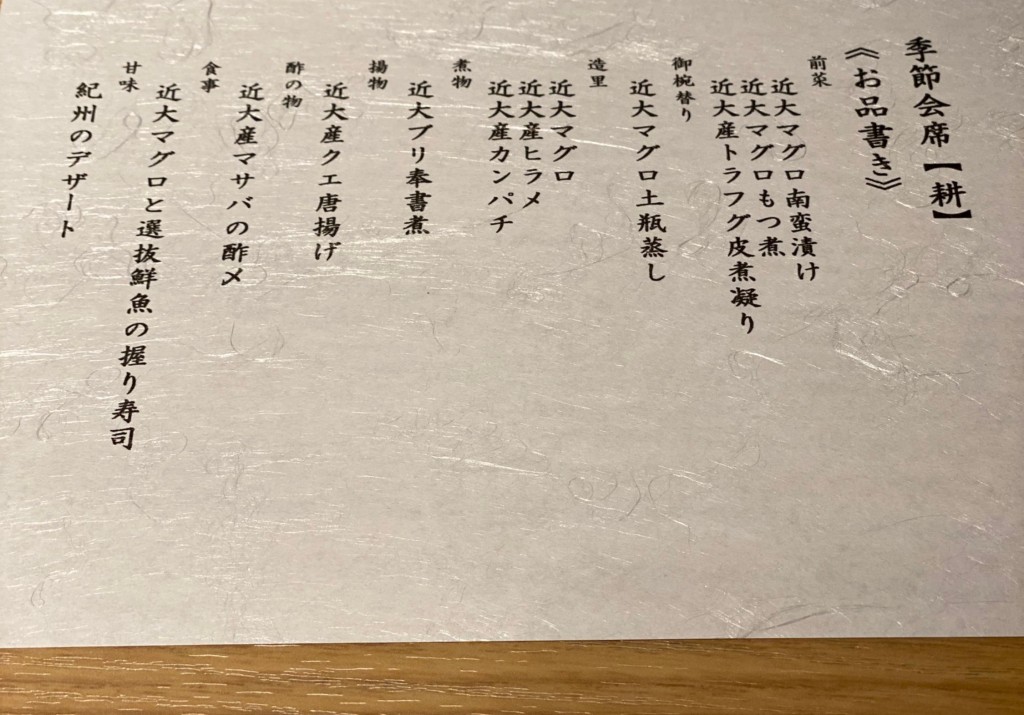 季節会席【耕】
《お品書き》
前菜
近大マグロ南蛮漬け
近大マグロもつ煮
近大産トラフグ皮煮凝り
御椀替り
近大マグロ土瓶蒸し
造里
近大マグロ
近大産ヒラメ
近大産カンパチ
煮物
近大ブリ奉書煮
揚物
近大産クエ唐揚げ
酢の物
近大産マサバの酢〆
食事
近大マグロと選抜鮮魚の握り寿司
甘味
紀州のデザート